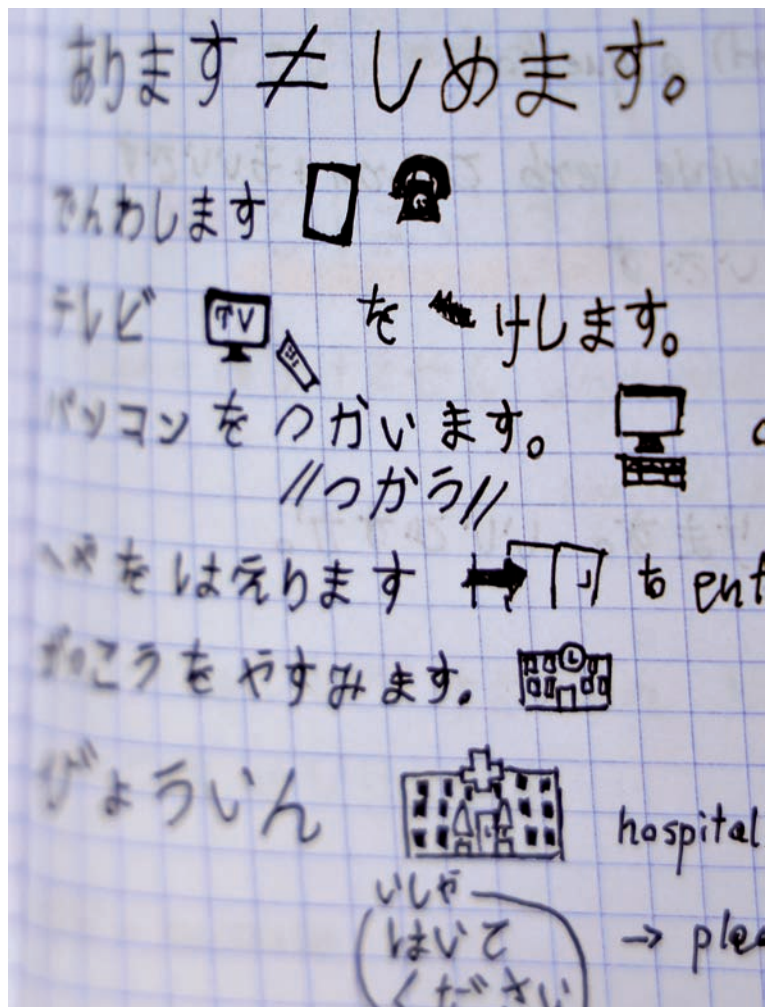 あります ≠ しめます。
でんわします
テレビ TV を けします。
パソコン を つかいます。
//つかう//
へやをはえります to ent
がっこうをやすみます。
びょういん hospital
いしゃ
はいて → plea
ください